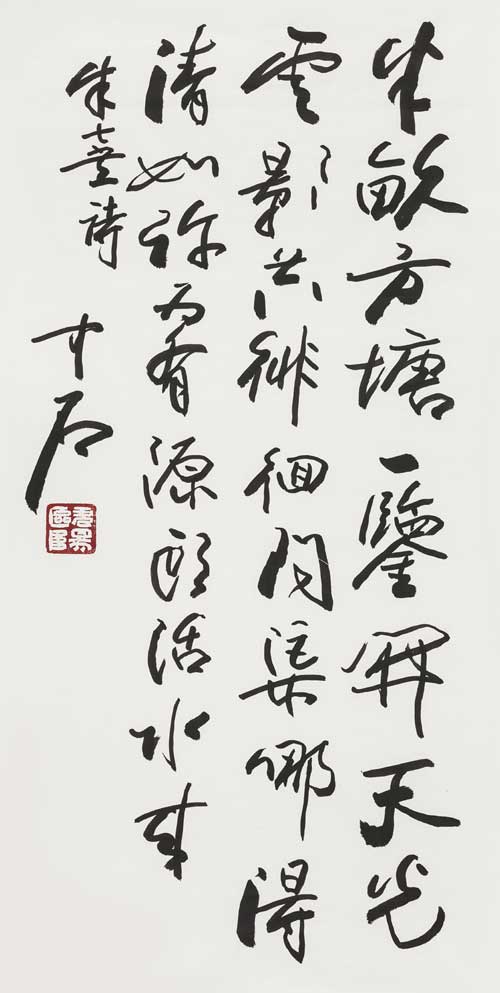 半畝方塘一鑒開天光
雲影共徘徊問渠哪得
清如許為有源頭活水來
朱熹詩
中石